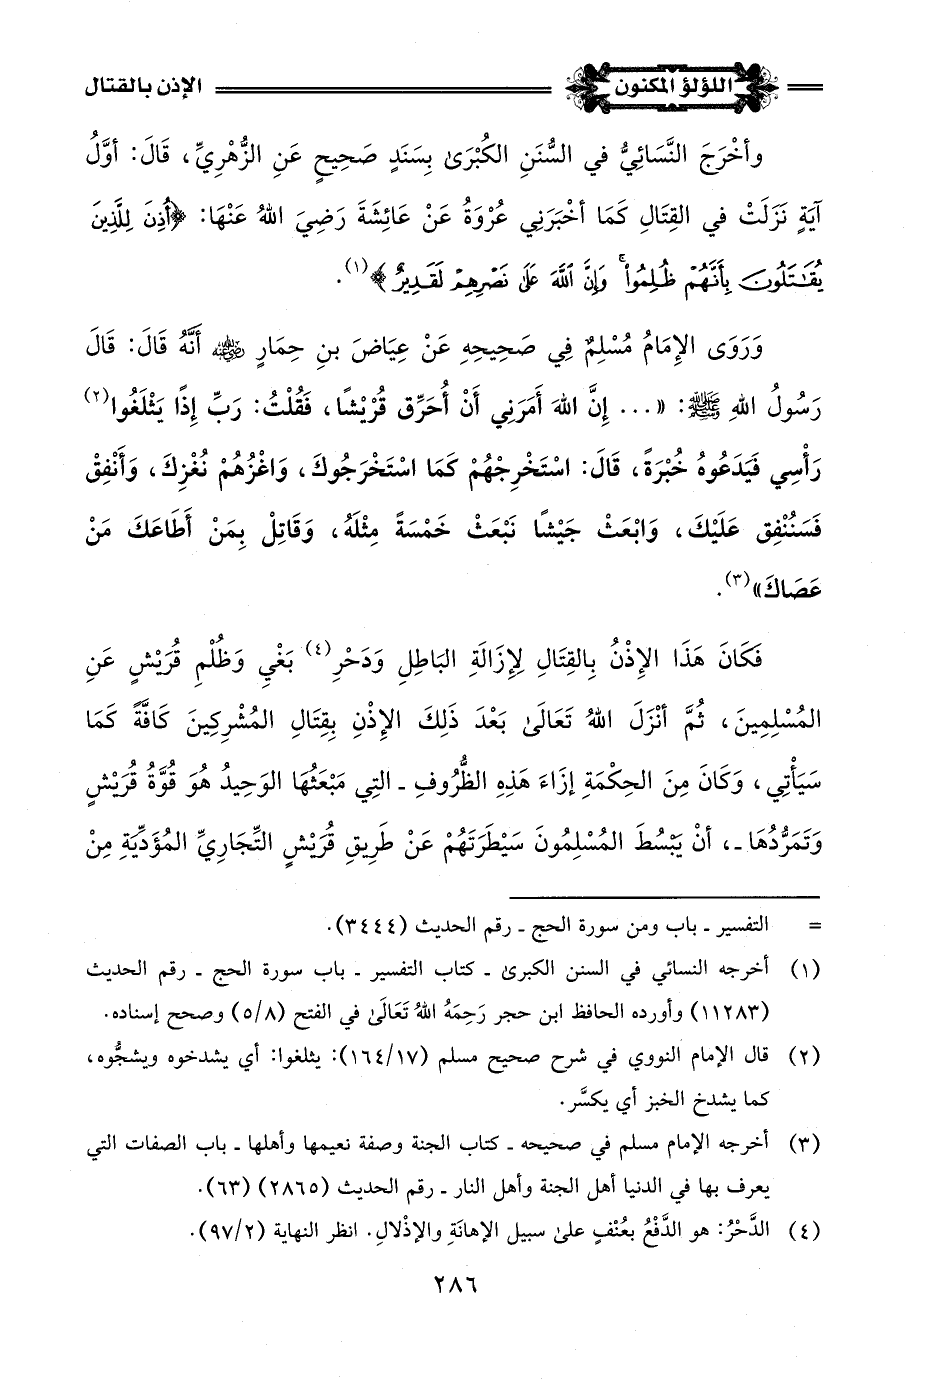 اللؤلؤ المكنون الإذن بالقتال
وأخْرَجَ النَّسَائِيُّ في السُّنَنِ الكُبْرَىٰ بِسَنَدٍ صَحِيحٍ عَنِ الزُّهْرِيِّ، قَالَ: أوَّلُ
آيَةٍ نَزَلَتْ في القِتَالِ كَمَا أخْبَرَنِي عُرْوَةُ عَنْ عَائِشَةَ رَضِيَ اللهُ عَنْهَا: ﴿أُذِنَ لِلَّذِينَ
يُقَٰتَلُونَ بِأَنَّهُمْ ظُلِمُواْۚ وَإِنَّ ٱللَّهَ عَلَىٰ نَصْرِهِمْ لَقَدِيرٌ﴾(١).
وَرَوَى الإمَامُ مُسْلِمٌ فِي صَحِيحِهِ عَنْ عِيَاضَ بنِ حِمَارٍ رضي الله عنه أنَّهُ قَالَ: قَالَ
رَسُولُ اللهِ ﷺ: «... إِنَّ اللهَ أَمَرَنِي أَنْ أُحَرِّق قُرَيْشًا، فَقُلْتُ: رَبِّ إِذًا يَثْلَغُوا(٢)
رَأْسِي فَيَدَعُوهُ خُبْزَةً، قَالَ: اسْتَخْرِجْهُمْ كَمَا اسْتَخْرَجُوكَ، وَاغْزُهُمْ نُغْزِكَ، وَأَنْفِقْ
فَسَنُنْفِق عَلَيْكَ، وَابْعَثْ جَيْشًا نَبْعَثْ خَمْسَةً مِثْلَهُ، وَقَاتِلْ بِمَنْ أَطَاعَكَ مَنْ
عَصَاكَ»(٣).
فَكَانَ هَذَا الإذْنُ بِالقِتَالِ لِإزَالَةِ البَاطِلِ وَدَحْرِ(٤) بَغْيِ وَظُلْمِ قُرَيْشٍ عَنِ
المُسْلِمِينَ، ثُمَّ أنْزَلَ اللهُ تَعَالَىٰ بَعْدَ ذَلِكَ الإذْنِ بِقِتَالِ المُشْرِكِينَ كَافَّةً كَمَا
سَيَأْتِي، وَكَانَ مِنَ الحِكْمَةِ إزَاءَ هَذِهِ الظُّرُوفِ ـ التِي مَبْعَثُهَا الوَحِيدُ هُوَ قُوَّةُ قُرَيْشٍ
وَتَمَرُّدُهَا ـ، أنْ يَبْسُطَ المُسْلِمُونَ سَيْطَرَتَهُمْ عَنْ طَرِيقِ قُرَيْشٍ التِّجَارِيِّ المُؤَدِّيَةِ مِنْ
= التفسير ـ باب ومن سورة الحج ـ رقم الحديث (٣٤٤٤).
(١) أخرجه النسائي في السنن الكبرىٰ ـ كتاب التفسير ـ باب سورة الحج ـ رقم الحديث
(١١٢٨٣) وأورده الحافظ ابن حجر رَحِمَهُ اللهُ تَعَالَىٰ في الفتح (٥/٨) وصحح إسناده.
(٢) قال الإمام النووي في شرح صحيح مسلم (١٦٤/١٧): يثلغوا: أي يشدخوه ويشجُّوه،
كما يشدخ الخبز أي يكسَّر.
(٣) أخرجه الإمام مسلم في صحيحه ـ كتاب الجنة وصفة نعيمها وأهلها ـ باب الصفات التي
يعرف بها في الدنيا أهل الجنة وأهل النار ـ رقم الحديث (٢٨٦٥) (٦٣).
(٤) الدَّحْرُ: هو الدَّفْعُ بعُنْفٍ علىٰ سبيل الإهانَةِ والإذْلالِ. انظر النهاية (٩٧/٢).
٢٨٦